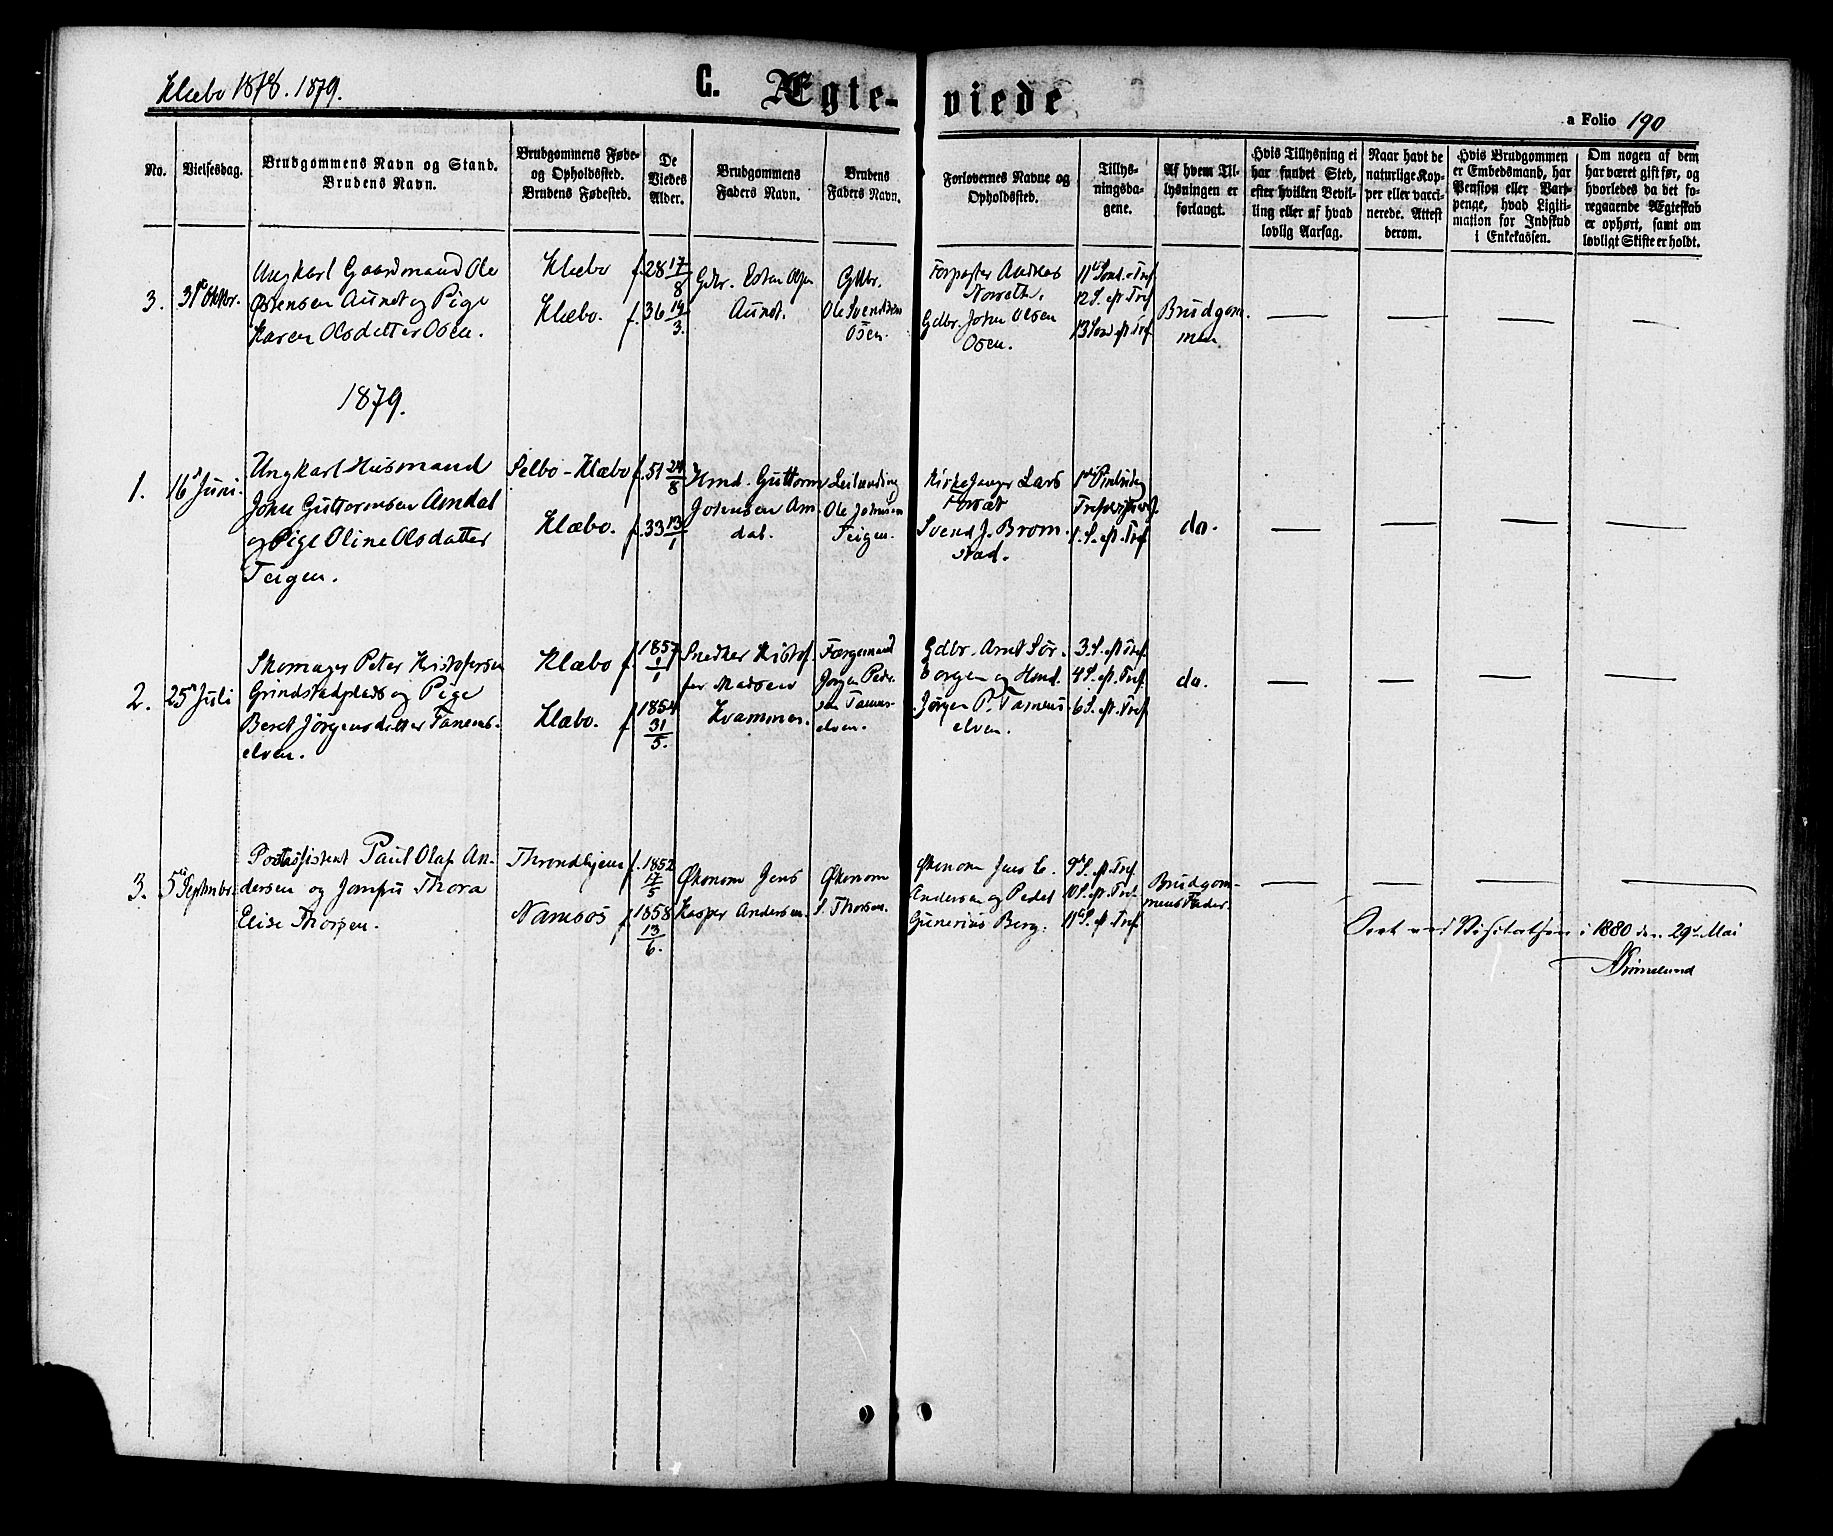 Klæbo 1878. 1879.
G. Ægte-viede
a Folio 190
No.
Vielsesdag.
Brudgommens Navn og Stand.
Brudens Navn.
Brudgommens Føde-
og Opholdssted.
Brudens Fødested.
De
Viedes
Alder.
Brudgommens
Faders Navn.
Brudens
Faders Navn.
Forlovernes Navne og
Opholdssted.
Tillys-
ningsda-
gene.
Af hvem Til-
lysningen er
forlangt.
Hvis Tillysning ei
har fundet Sted,
efter hvilken Bevil-
ling eller af hvad
lovlig Aarsag.
Naar havt de
naturlige Kop-
per eller vacci-
nerede. Attest
derom.
Hvis Brudgommen
er Embedsmand, har
Pension eller Vart-
penge, hvad Ligiti-
mation for Indskud
i Enkekassen.
Om nogen af dem
har været gift før, og
hvorledes da det fo-
regaaende Ægteskab
er ophørt, samt om
lovligt Skifte er holdt.
3.
31te Oktbr.
Ungkarl Gaardmand Ole
Estensen Aunet og Pige
Karen Olsdatter Osen.
Klæbo
Klæbo.
f. 28 17/8
f. 36 19/3.
Gdbr. Esten Olsen
Aunet.
Gdbr.
Ole Svendsen
Osen.
Forpagter Andreas
Gdbr. John Olsen
Osen.
11te Sønd. e Tref
12 S. eft Tref
13 Sønd eft Tref.
Brudgom-
men
1879.
1.
16d Juni.
Ungkarl Husmand
John Guttormsen Amdal
og Pige Oline Olsdatter
Teigen.
Selbo - Klæbo
Klæbo.
f. 51 24/8
f. 33 13/1
Hmd. Guttorm
Johnsen Am-
dal.
Leilænding
Ole Johnsen
Teigen.
Kirkesanger Lars
Forsæt
Svend J. Brøm-
stad.
1. S. eft. Tref.
do.
2.
25d Juli
Skomager Peter Kristofersen
Grindstadplads og Pige
Beret Jørgensdatter Tanems-
elven.
Klæbo
Klæbo.
f. 1857 1/1
f. 1854 31/5.
Snedker Kristof-
fer Madsen
Kvammen.
Færgemand
Jørgen Peder-
sen Tanems-
elven.
Gdbr. Arnt Sør-
borgen og Hmd.
Jørgen P. Tanems-
elven.
3. S. eft Tref.
4 S. eft. Tref.
6 S. eft. Tref
do.
3.
5te Septembr.
Postassistent Paul Olaf An-
dersen og Jomfru Thora
Elise Thorsen.
Throndhjem
Namsos
f. 1852 17/5
f. 1858 13/6.
Økonom Jens
Kasper Andersen.
Økonom
S. Thorsen.
Økonom Jens C.
Andersen og Peder
Gunerius Berg.
9d S. eft. Tref.
10 S. eft. Tref.
11te S. eft Tref.
Brudgom-
mens Fader.
Seet ved Visitatsen i 1880 den 29d Mai